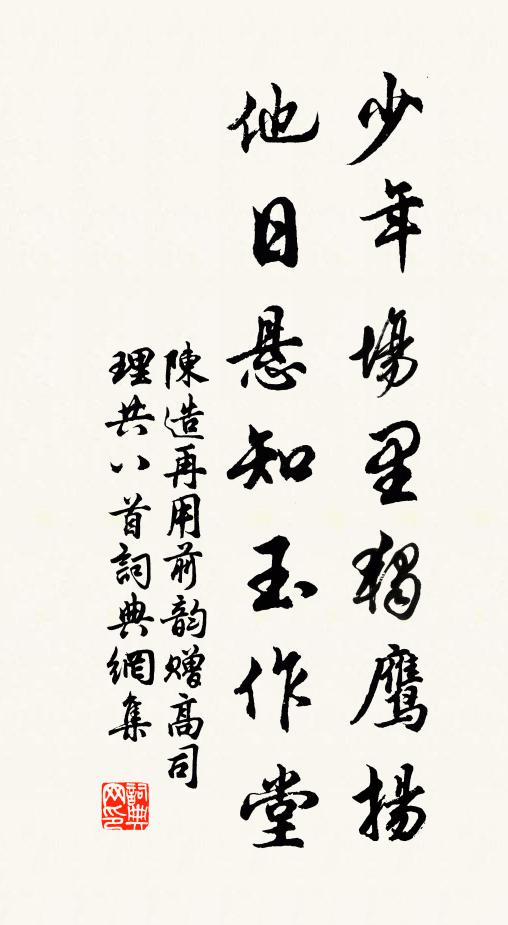 少年場里獨鷹揚
他日懸知玉作堂
陳造再用前韵贈高司
理共八首詞典網集
詞典
网印